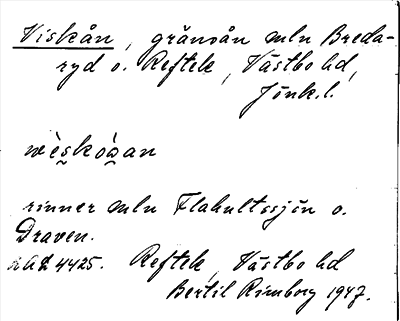 Viskån, gränsån mln Breda-
ryd o. Reftele, Västbo hd,
Jönk.l.
rinner mln Flahultssjön o.
Draven.
4425. Reftele, Västbo hd
Bertil Rimborg 1947.